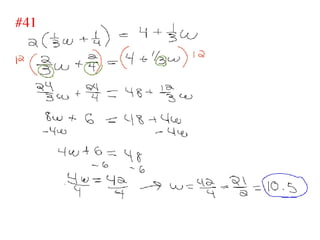 #41
2(1/3w + 1/4) = 4 + 1/3w
12(2/3w + 2/4) = (4 + 1/3w)12
24/3w + 24/4 = 48 + 12/3w
8w + 6 = 48 + 4w
-4w -4w
4w + 6 = 48
-6 -6
4w/4 = 42/4 → w = 42/4 = 21/2 = 10.5